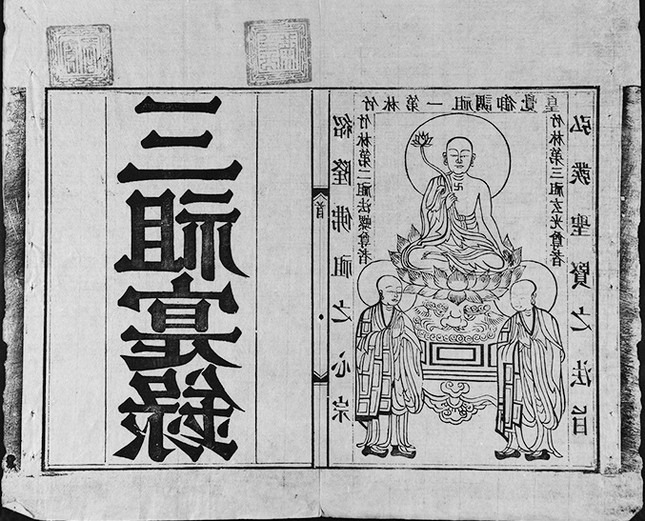 竹林第一祖調御覺皇
弘護聖賢之法旨
竹林第三祖玄光尊者
竹林第二祖法螺尊者
紹隆佛祖之心宗
首
三祖寔錄